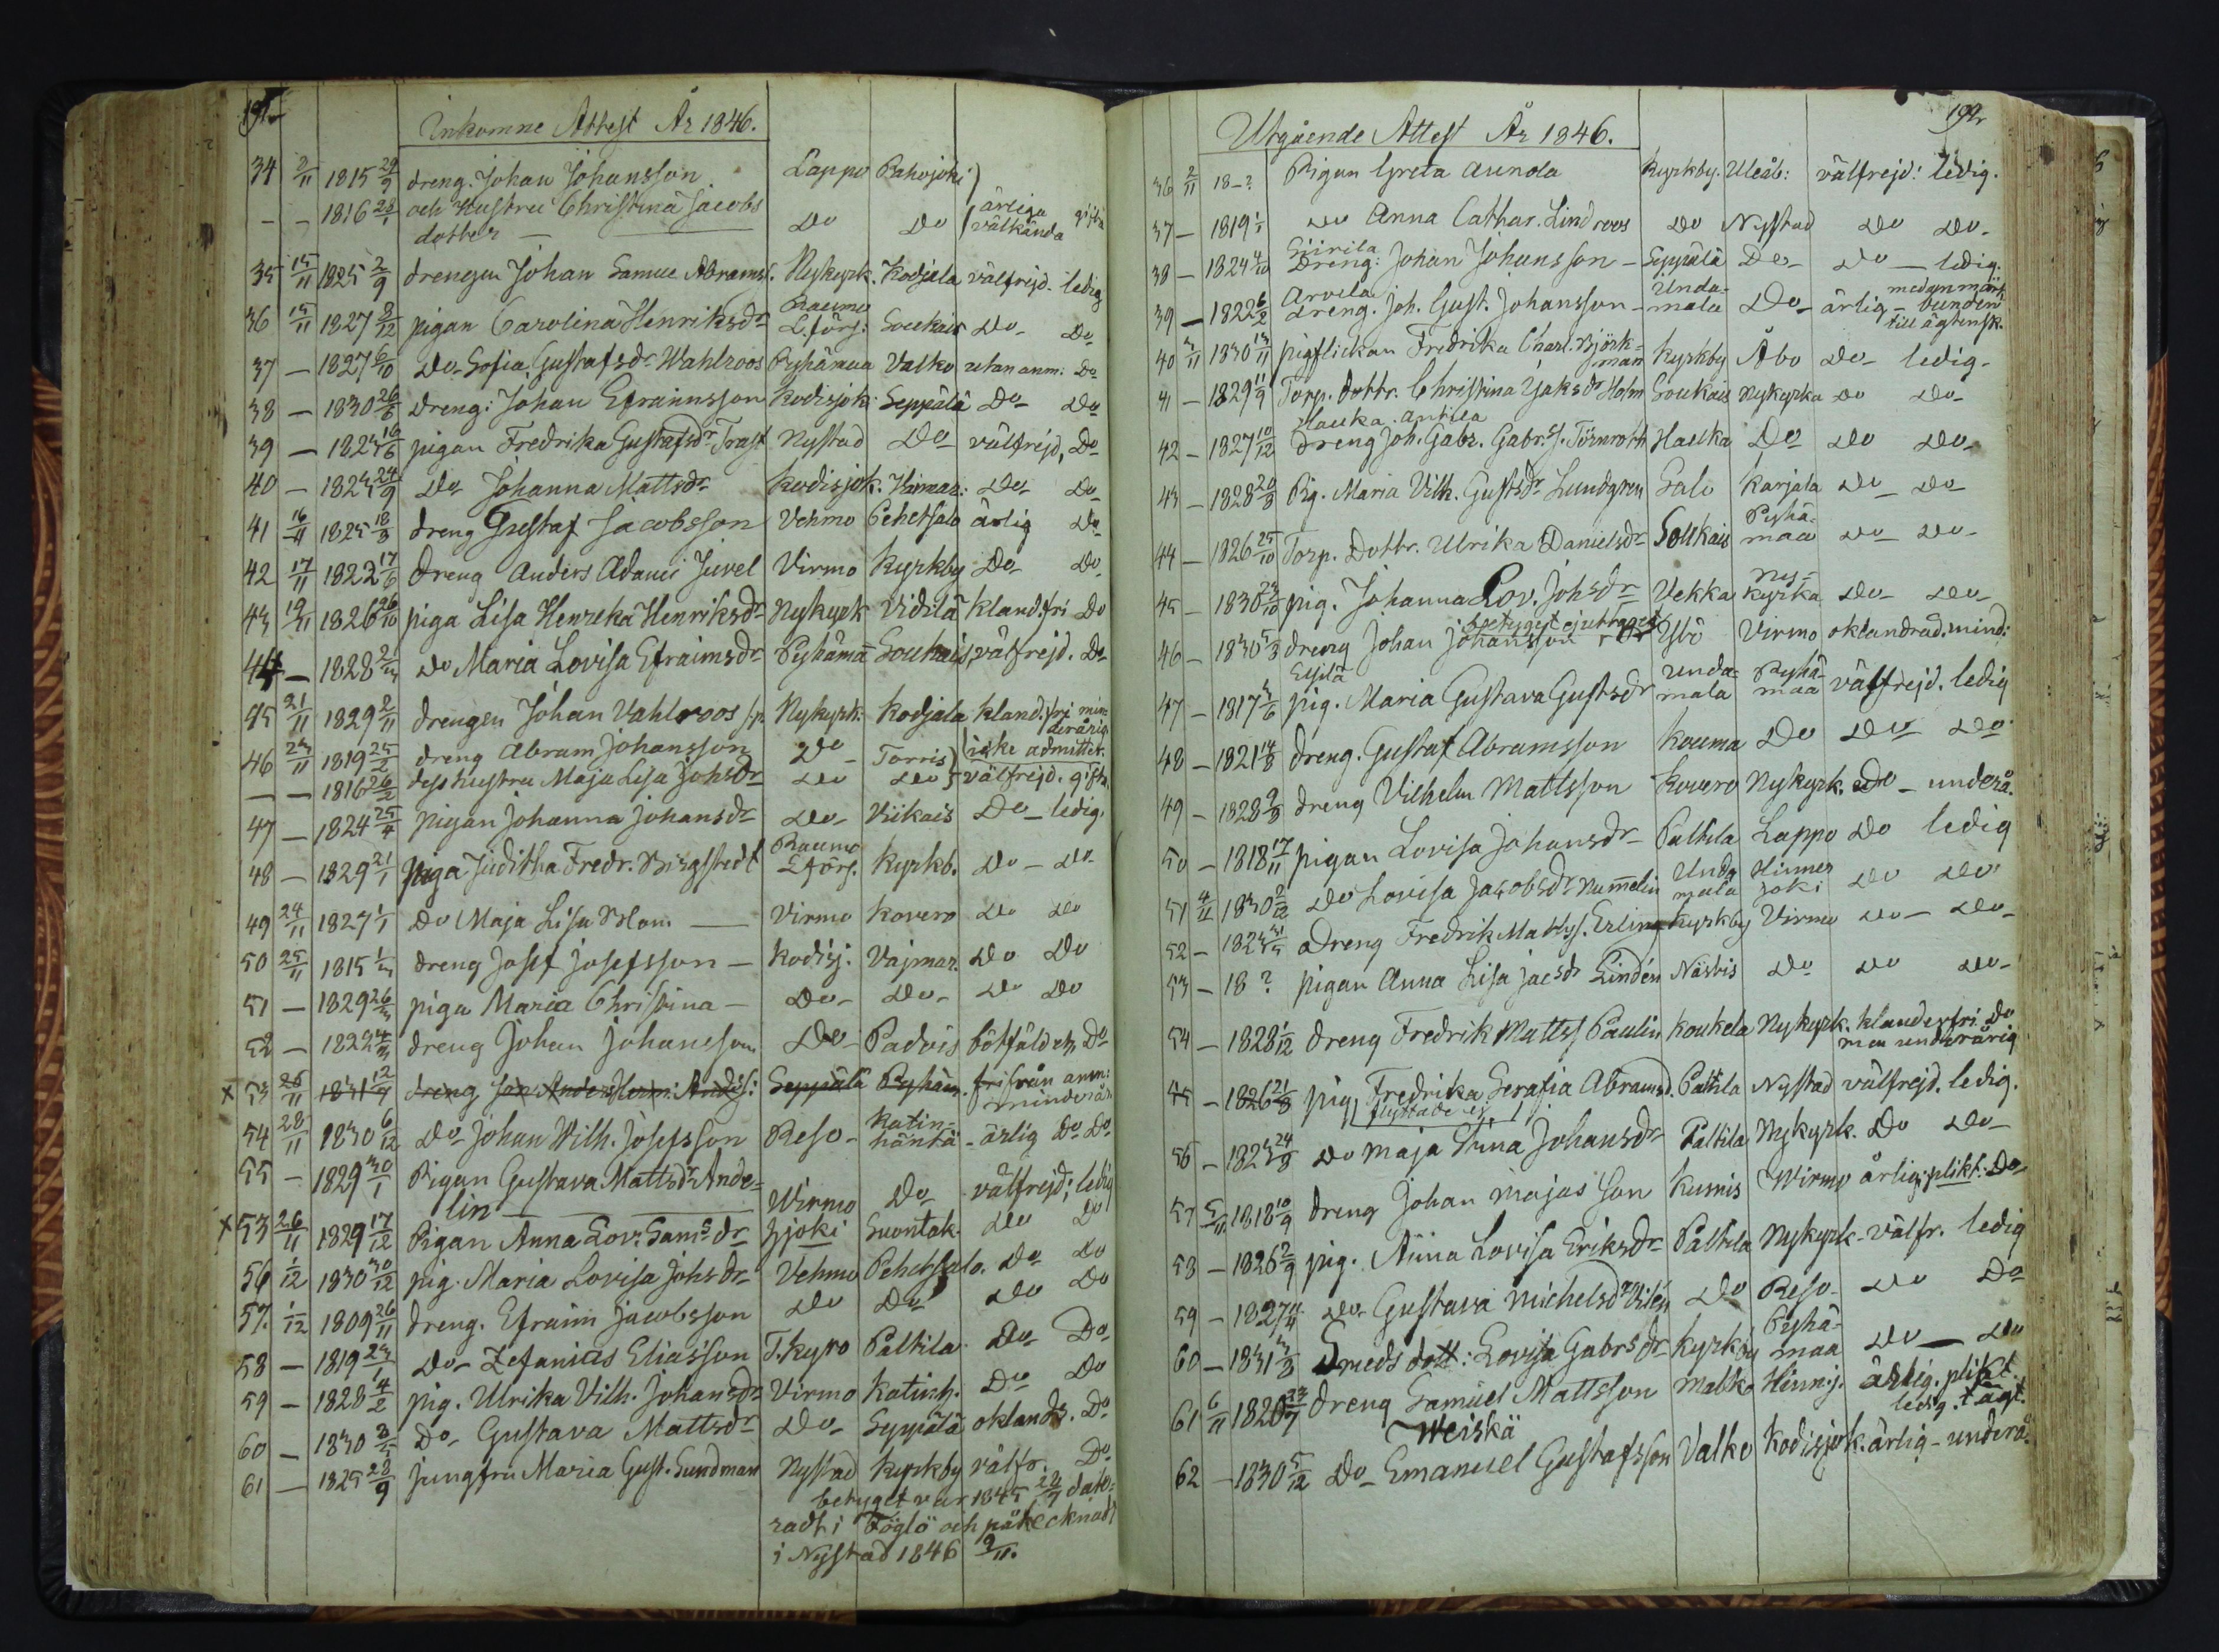 191
Inkomne Attest År 1846.
34 2/11 1815 29/9 dreng. Johan Johansson Lappo Rahojoki
- - 1816 28/1 och Hustru Christina Jacobs Do Do ärliga välkända gifta
dotter
35 15/11 1825 2/9 drengen Johan Samue Abrams. Nykyrk. Kodjala välfrejd. ledig
36 15/11 1827 8/12 pigan Carolina Henriksdr Raumo L.förs. Soukais Do Do
37 — 1827 6/10 Do Sofia Gustafsdr Wahlroos Pyhämaa Valko utan anm: Do
38 — 1830 26/6 dreng: Johan Efraimsson Kodisjok: Seppälä Do Do
39 — 1823 16/6 pigan Fredrika Gustafsdr Trast Nystad Do välfrejd, Do
40 — 1825 24/9 Do Johanna Mattsdr Kodisjok. Himar: Do Do
41 16/11 1825 18/3 dreng Gustaf Jacobsson Vehmo Pehetsalo ärlig Do
42 17/11 1822 17/6 dreng Anders Adami Juvel Virmo Kyrkby Do Do
43 19/11 1826 26/10 piga Lisa Henreka Henriksdr Nykyrk Vidilä kland.fri Do
44 — 1828 21/3 Do Maria Lovisa Efraimsdr Pyhäma Soukais välfrejd. Do
45 21/11 1829 2/11 drengen Johan Vahlroos Nykyrk. Kodjala kland.fri min
derårig
46 23/11 1819 25/2 dreng Abram Johansson Do Torris (icke admitter.
— — 1816 26/2 dess hustru Maja Lisa Johsdr Do Do välfrejd. gift.
47 — 1824 25/4 pigan Johanna Johansdr Do Viikais Do ledig.
48 — 1829 21/1 piga Juditha Fredr. Birgstedt Raumo L förs. Kyrkb. Do Do
49 24/11 1827 1/1 Do Maja Lisa Blom — Virmo Kovero Do Do
50 25/11 1815 1/3 dreng Josef Josefsson — Kodisj. Vajmar. Do Do
51 — 1829 26/3 piga Maria Christina — Do Do Do Do
52 — 1822 4/3 dreng Johan Johansson Do Padvis botfäld Do
x 53 26/11 1831 12/4 dreng Joh Anders Herm: Anders: Seppälä Pyhäm. fri från anm:
minderår
54 28/11 1830 6/12 Do Johan Wilh. Josefsson Reso Katin-
häntä ärlig Do Do
55 — 1829 30/1 Pigan Gustava Mattsdr Ande=
lin Wirmo Do välfrejd; ledig
x 53 26/11 1829 17/12 Pigan Anna Lov: Sams dr Hjoki Suontak. Do Do
56 1/12 1830 30/12 pig. Maria Lovisa Johsdr Vehmo Pehetsalo. Do Do
57. 1/12 1809 26/11 dreng. Efraim Jacobsson Do Do Do Do
58 — 1819 23/1 Do Zefanias Eliasson T.kyro Paltila Do Do
59 — 1828 4/2 pig. Ulrika Vilh. Johansdr Virmo Katinh. Do Do
60 — 1830 3/5 Do Gustava Mattsdr Do Seppälä oklandr. Do
61 — 1825 28/9 jungfru Maria Gust. Sundman Nystad Kyrkby välfr. Do
betyget var 1845 22/7 date-
radt i Föglö och påtecknadt
i Nystad 1846 9/11.
192
Utgående Attest År 1846.
36 2/11 18-? Pigan Greta Aunola Kyrkby. Uleåb: välfrejd: ledig.
37 — 1819 1/1 Do Anna Cathar. Lindroos Do Nystad Do Do
Siirila
38 — 1824 4/10 Dreng: Johan Johansson — Seppälä Do Do — ledig.
Arvela
39 — 1822 6/2 dreng. Joh. Gust. Johansson — Unda-
mala Do ärlig — medanmärk
bunden
till ägtensk.
40 3/11 1830 13/11 pigflickan Fredrika Charl. Björk=
man Kyrkby Åbo Do ledig
41 — 1829 11/9 Torp. dottr. Christina Jaksdr Holm Soukais Nykyrka Do Do
Hauka. Antila
42 — 1827 10/12 dreng Joh. Gabr. Gabr.s. Törnroth Hauka Do Do Do
43 — 1828 20/3 Pig. Maria Vilh. Gustsdr Lundgren Salo Karjala Do Do
44 — 1826 25/10 Torp. Dottr. Ulrika Danielsdr Soukais Pyhä-
maa Do Do
45 — 1830 23/10 pig. Johanna Lov. Johsdr Vekka Ny-
kyrka Do Do
betyget ej uttaget
46 — 1830 5/3 dreng Johan Johansson Ylö Virmo oklandrad. mind:
Eljilä
47 — 1817 3/6 pig. Maria Gustava Gustsdr Unda-
mala Pyhä-
maa välfrejd. ledig
48 — 1821 14/8 dreng. Gustaf Abramsson Kouma Do Do Do
49 — 1828 9/3 dreng Vilhelm Mattsson Kovero Nykyrk. Do — underå.
50 — 1818 17/11 pigan Lovisa Johansdr Paltila Lappo Do ledig
51 4/11 1830 2/12 Do Lovisa Jacobsdr Numelin Unda
mala Hinner
joki Do Do
52 — 1823 31/5 Dreng Fredrik Mattss. Erling Kyrkby Virmo Do Do
53 — 18 ? pigan Anna Lisa Jacsdr Lindén Näsbis Do Do Do
54 — 1828 1/12 dreng Fredrik Mattss Paulin Koukela Nykyrk. klanderfri. Do
men underårig
55 — 1826 21/8 pig. Fredrika Serafia Abramsd. Paltila Nystad välfrejd. ledig.
flyttade ej
56 — 1823 24/8 Do Maja Stina Johansdr Paltila Nykyrk. Do Do
57 5/11 1818 10/9 dreng Johan Majas Son Kumis Wirmo ärlig; plikt: Do
58 — 1826 2/9 pig. Anna Lovisa Eriksdr Paltila Nykyrk. välfr. ledig
59 — 1827 4/4 Do Gustava Michelsdr Vilén Do Reso Do Do
60 — 1831 3/3 Smeds dott: Lovisa Gabrsdr Kyrkby Pyhä-
maa Do Do
61 6/11 1820 23/7 dreng Samuel Mattsson Malko Hinn.j. ärlig. plikt.
ledig. t ägt.
Weiskä
62 — 1830 5/12 Do Emanuel Gustafsson Valko Kodisjok. ärlig — underå.